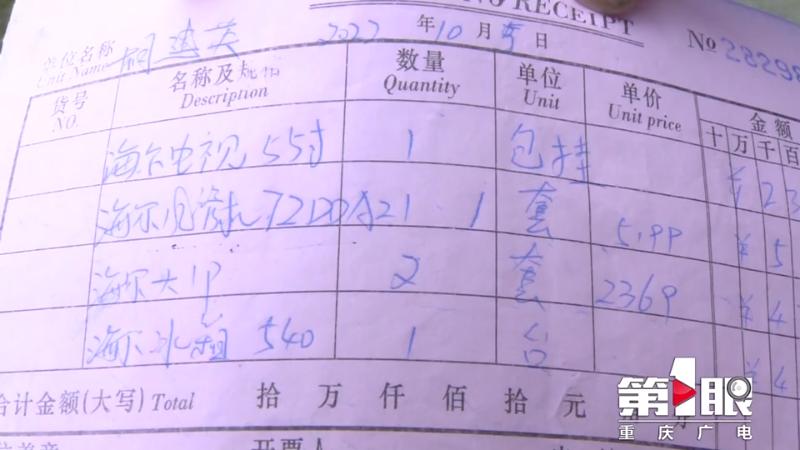 NO RECEIPT
单位名称 Unit Name 2022 年 10 月 5 日 No 28298
货号 NO. 名称及规格 Description 数量 Quantity 单位 Unit 单价 Unit price 金额 十 万 千 百
海尔电视 55寸 1 包挂 ¥ 2 3
海尔 72DDA21 1 套 5199 ¥ 5
海尔大1P 2 套 2369 ¥ 4
海尔冰箱 540 1 台 ¥ 4
合计金额(大写) Total 拾 万 仟 佰 拾 元
开票人
第1眼
重庆广电